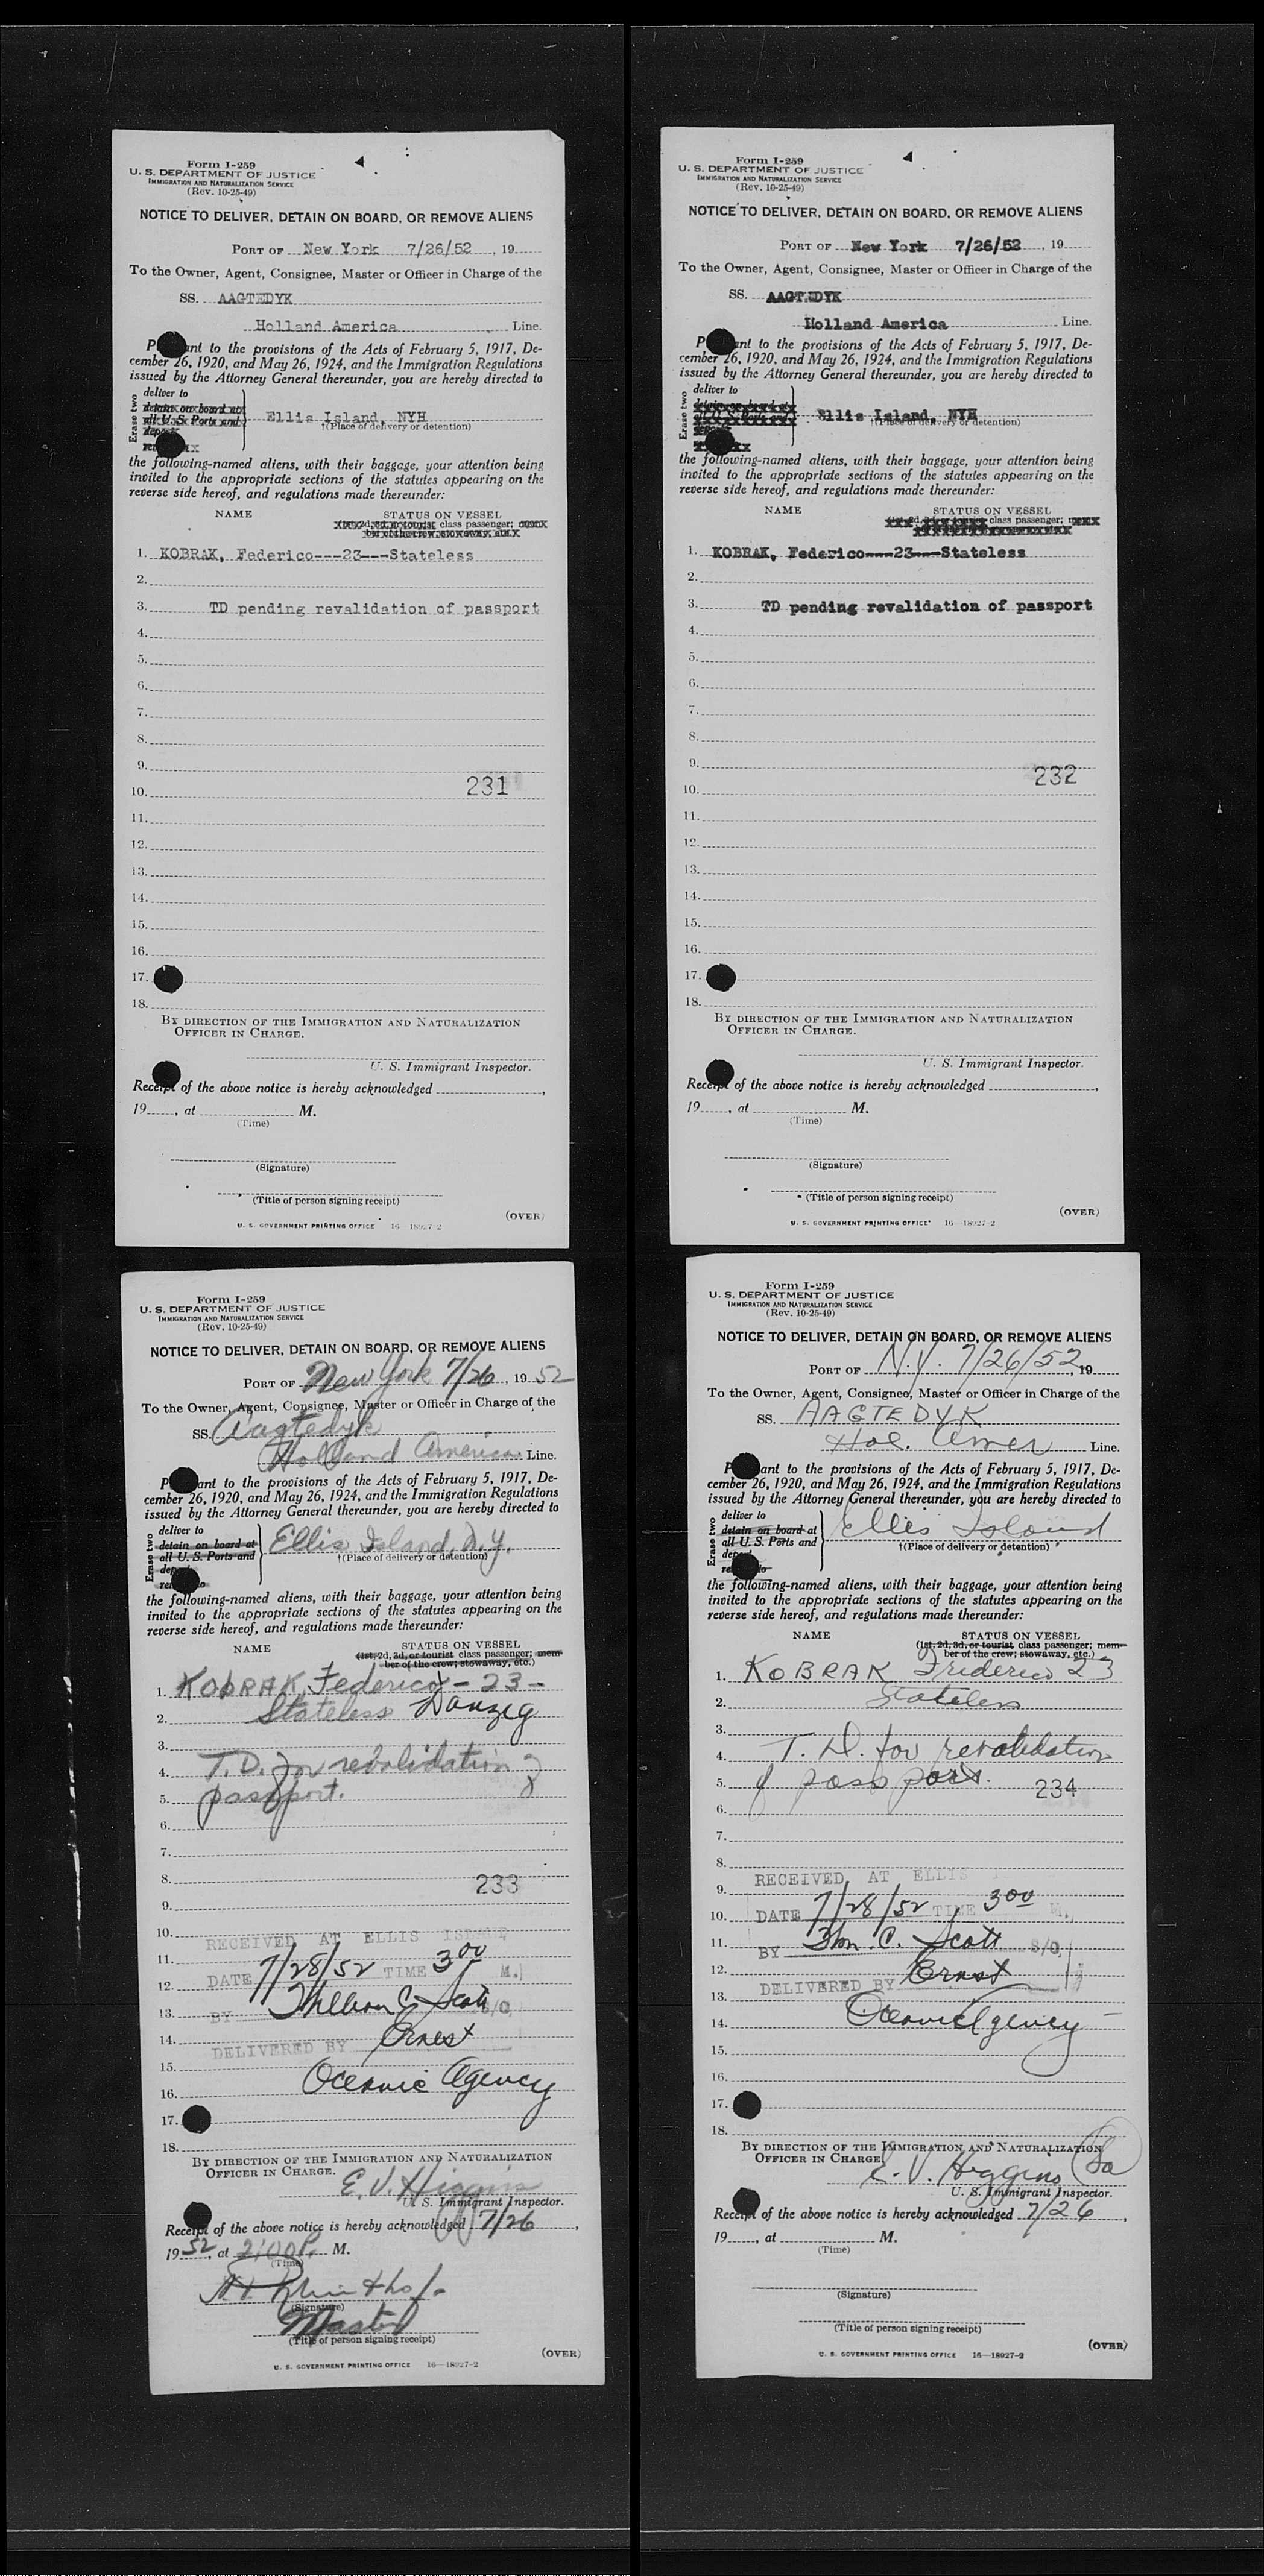 Form I-259
U. S. DEPARTMENT OF JUSTICE
IMMIGRATION AND NATURALIZATION SERVICE
(Rev. 10-25-49)
NOTICE TO DELIVER, DETAIN ON BOARD, OR REMOVE ALIENS
PORT OF New York 7/26/52, 19
To the Owner, Agent, Consignee, Master or Officer in Charge of the
SS. AAGTEDYK
Holland America Line.
P ant to the provisions of the Acts of February 5, 1917, De-
cember 26, 1920, and May 26, 1924, and the Immigration Regulations
issued by the Attorney General thereunder, you are hereby directed to
Erase two
deliver to
detain on board at
all U. S. Ports and
Ellis Island, NYH
†(Place of delivery or detention)
the following-named aliens, with their baggage, your attention being
invited to the appropriate sections of the statutes appearing on the
reverse side hereof, and regulations made thereunder:
NAME STATUS ON VESSEL
(1st, 2d, 3d, or tourist class passenger; mem-
ber of the crew, stowaway, etc.)
1. KOBRAK, Federico---23---Stateless
2.
3. TD pending revalidation of passport
4.
5.
6.
7.
8.
9.
231
10.
11.
12.
13.
14.
15.
16.
17.
18.
BY DIRECTION OF THE IMMIGRATION AND NATURALIZATION
OFFICER IN CHARGE.
U. S. Immigrant Inspector.
Receipt of the above notice is hereby acknowledged ,
19 , at M.
(Time)
(Signature)
(Title of person signing receipt)
(OVER)
U. S. GOVERNMENT PRINTING OFFICE 16—18927-2
Form I-259
U. S. DEPARTMENT OF JUSTICE
IMMIGRATION AND NATURALIZATION SERVICE
(Rev. 10-25-49)
NOTICE TO DELIVER, DETAIN ON BOARD, OR REMOVE ALIENS
PORT OF New York 7/26/52, 19
To the Owner, Agent, Consignee, Master or Officer in Charge of the
SS. AAGTEDYK
Holland America Line.
P ant to the provisions of the Acts of February 5, 1917, De-
cember 26, 1920, and May 26, 1924, and the Immigration Regulations
issued by the Attorney General thereunder, you are hereby directed to
Erase two
deliver to
detain on board at
all U. S. Ports and
Ellis Island, NYH
†(Place of delivery or detention)
the following-named aliens, with their baggage, your attention being
invited to the appropriate sections of the statutes appearing on the
reverse side hereof, and regulations made thereunder:
NAME STATUS ON VESSEL
class passenger;
1. KOBRAK, Federico---23---Stateless
2.
3. TD pending revalidation of passport
4.
5.
6.
7.
8.
9.
232
10.
11.
12.
13.
14.
15.
16.
17.
18.
BY DIRECTION OF THE IMMIGRATION AND NATURALIZATION
OFFICER IN CHARGE.
U. S. Immigrant Inspector.
Receipt of the above notice is hereby acknowledged ,
19 , at M.
(Time)
(Signature)
(Title of person signing receipt)
(OVER)
U. S. GOVERNMENT PRINTING OFFICE 16—18927-2
Form I-259
U. S. DEPARTMENT OF JUSTICE
IMMIGRATION AND NATURALIZATION SERVICE
(Rev. 10-25-49)
NOTICE TO DELIVER, DETAIN ON BOARD, OR REMOVE ALIENS
PORT OF New York 7/26, 19 52
To the Owner, Agent, Consignee, Master or Officer in Charge of the
SS. Aagtedyk
Holland America Line.
P ant to the provisions of the Acts of February 5, 1917, De-
cember 26, 1920, and May 26, 1924, and the Immigration Regulations
issued by the Attorney General thereunder, you are hereby directed to
Erase two
deliver to
detain on board at
all U. S. Ports and
Ellis Island, N.Y.
†(Place of delivery or detention)
the following-named aliens, with their baggage, your attention being
invited to the appropriate sections of the statutes appearing on the
reverse side hereof, and regulations made thereunder:
NAME STATUS ON VESSEL
(1st, 2d, 3d, or tourist class passenger; mem-
ber of the crew; stowaway, etc.)
1. KOBRAK, Federico - 23 -
2. Stateless Danzig
3.
4. T.D. for revalidation of
5. passport.
6.
7.
8. 233
9.
10. RECEIVED AT ELLIS ISLAND
11. DATE 7/28/52 TIME 3 00 M.
12.
13. BY William C. Scott S/O
14. DELIVERED BY Ernest
15.
16. Oceanic Agency
17.
18.
BY DIRECTION OF THE IMMIGRATION AND NATURALIZATION
OFFICER IN CHARGE. E. V. Higgins
U. S. Immigrant Inspector.
Receipt of the above notice is hereby acknowledged 7/26,
19 52, at 2:00 P. M.
(Time)
(Signature)
Master
(Title of person signing receipt)
(OVER)
U. S. GOVERNMENT PRINTING OFFICE 16—18927-2
Form I-259
U. S. DEPARTMENT OF JUSTICE
IMMIGRATION AND NATURALIZATION SERVICE
(Rev. 10-25-49)
NOTICE TO DELIVER, DETAIN ON BOARD, OR REMOVE ALIENS
PORT OF N.Y. 7/26/52, 19
To the Owner, Agent, Consignee, Master or Officer in Charge of the
SS. AAGTEDYK
Hol. Amer Line.
P ant to the provisions of the Acts of February 5, 1917, De-
cember 26, 1920, and May 26, 1924, and the Immigration Regulations
issued by the Attorney General thereunder, you are hereby directed to
Erase two
deliver to
detain on board at
all U. S. Ports and
Ellis Island
†(Place of delivery or detention)
the following-named aliens, with their baggage, your attention being
invited to the appropriate sections of the statutes appearing on the
reverse side hereof, and regulations made thereunder:
NAME STATUS ON VESSEL
(1st, 2d, 3d, or tourist class passenger; mem-
ber of the crew; stowaway, etc.)
1. KOBRAK Friderico 23
2. Stateless
3.
4. T. D. for revalidation
5. of passport. 234
6.
7.
8.
RECEIVED AT ELLIS
9.
10. DATE 7/28/52 TIME 3 00 M.
11. BY Wm. C. Scott S/O
12. Ernest
DELIVERED BY
13.
14. Oceanic Agency
15.
16.
17.
18.
BY DIRECTION OF THE IMMIGRATION AND NATURALIZATION
OFFICER IN CHARGE. E. V. Higgins
U. S. Immigrant Inspector.
Receipt of the above notice is hereby acknowledged 7/26,
19 , at M.
(Time)
(Signature)
(Title of person signing receipt)
(OVER)
U. S. GOVERNMENT PRINTING OFFICE 16—18927-2